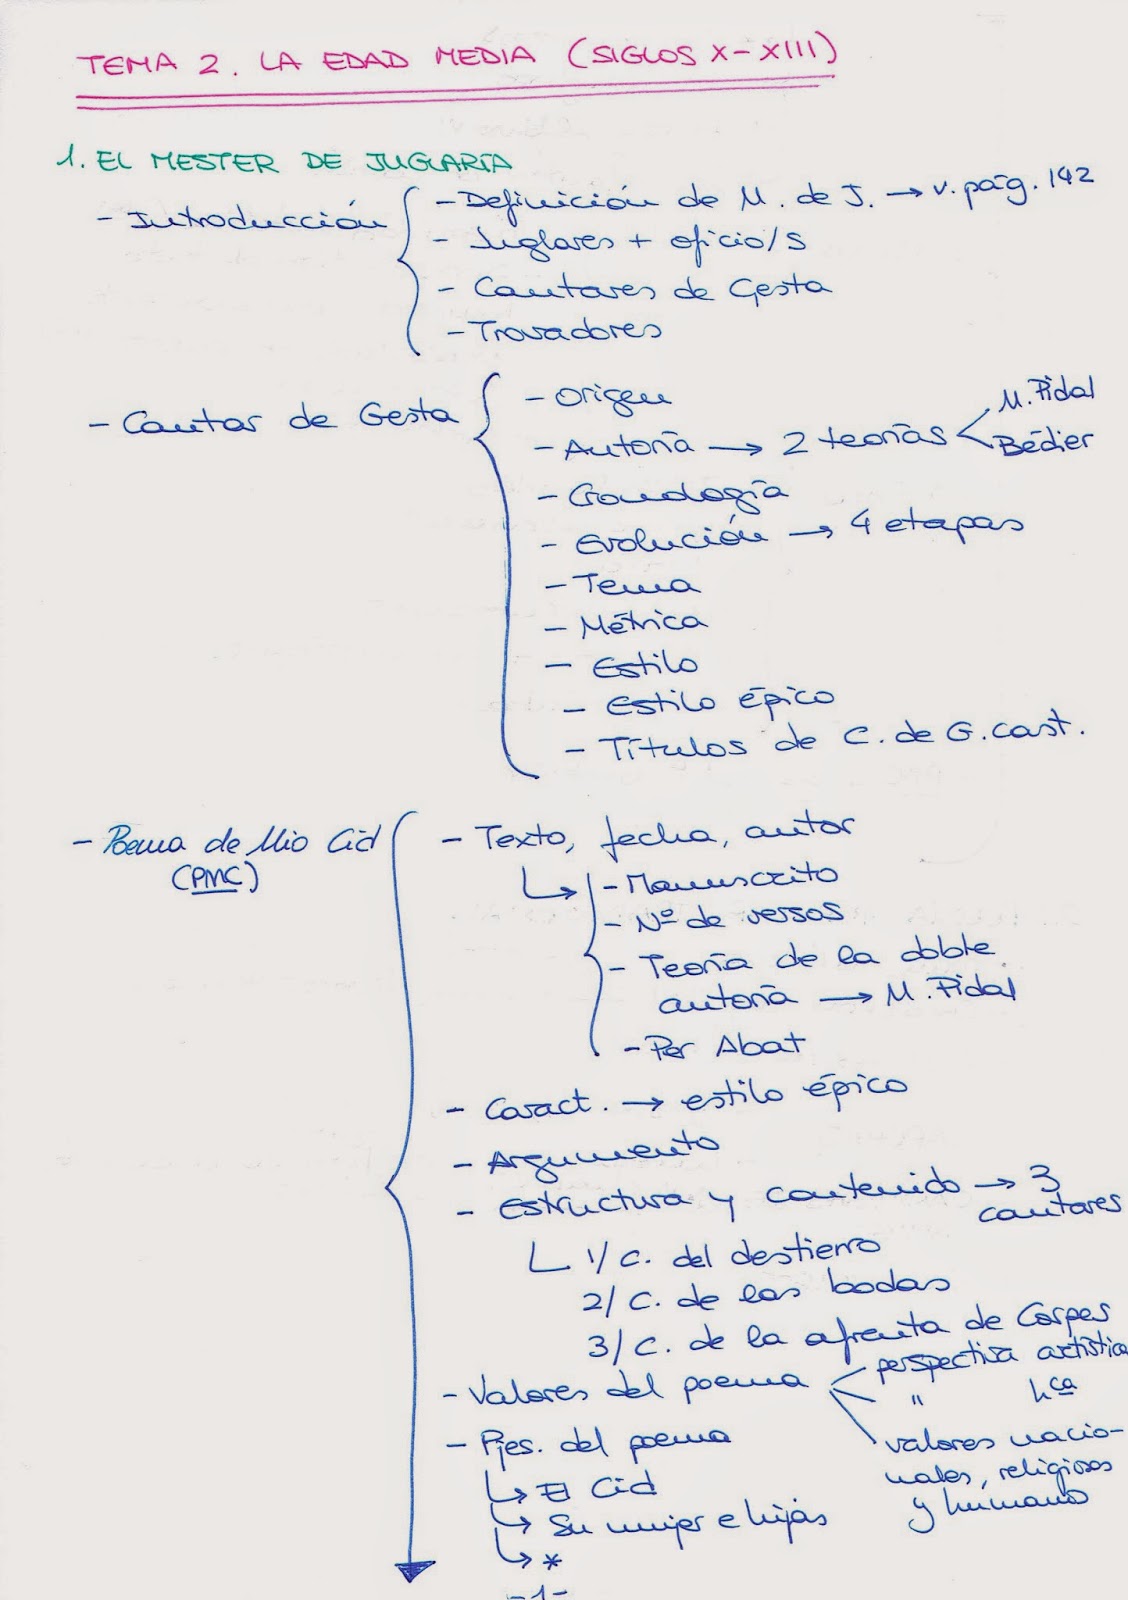 TEMA 2. LA EDAD MEDIA (SIGLOS X-XIII)
1. EL MESTER DE JUGLARÍA
- Introducción
- Definición de M. de J. → v. pág. 142
- Juglares + oficio/s
- Cantares de Gesta
- Trovadores
- Cantar de Gesta
- Origen
- Autoría → 2 teorías
M. Pidal
Bédier
- Cronología
- Evolución → 4 etapas
- Tema
- Métrica
- Estilo
- Estilo épico
- Títulos de C. de G. cast.
- Poema de Mio Cid
(PMC)
- Texto, fecha, autor
- Manuscrito
- Nº de versos
- Teoría de la doble
autoría → M. Pidal
- Per Abat
- Caract. → estilo épico
- Argumento
- Estructura y contenido → 3
cantares
1/ C. del destierro
2/ C. de las bodas
3/ C. de la afrenta de Corpes
- Valores del poema
perspectiva artística
" hca
valores nacio-
nales, religiosos
y humano
- Pjes. del poema
↳ El Cid
↳ Su mujer e hijas
↳ *
-1-